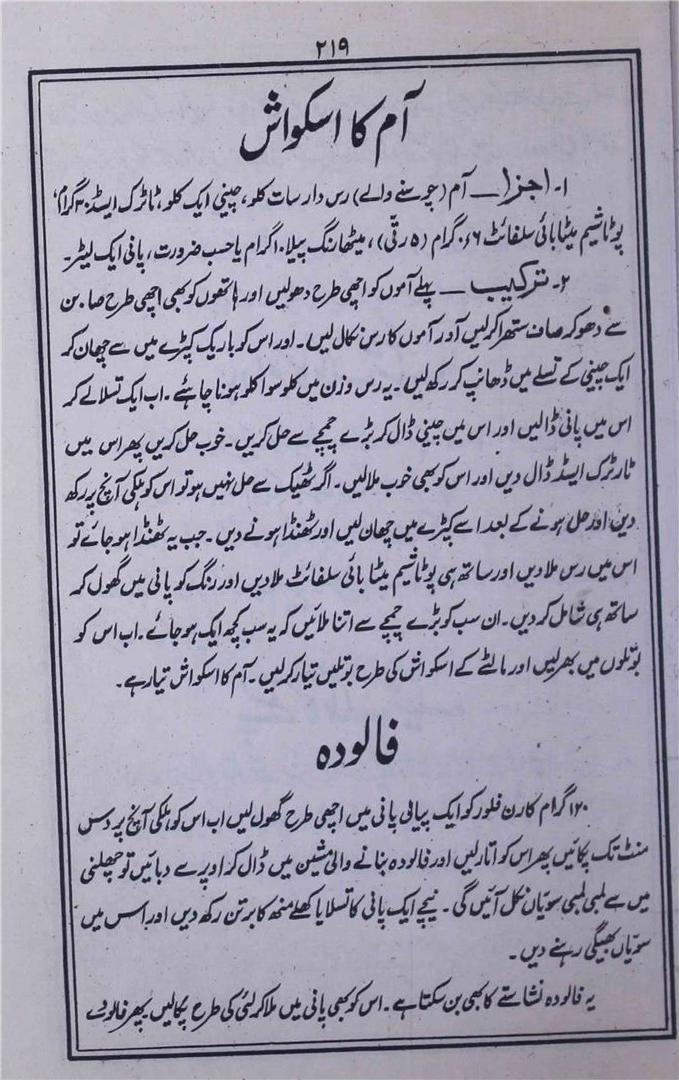 ۲۱۹
آم کا اسکواش
۱۔ اجزا ــ آم (چوسنے والے) رس دار سات کلو، چینی ایک کلو، ٹاٹرک ایسڈ ۳۰ گرام،
پوٹاشیم میٹا بائی سلفائٹ ۶ء۰ گرام (۵ رتّی)، میٹھا رنگ پیلا ۱۰ گرام یا حسب ضرورت، پانی ایک لیٹر۔
۲۔ ترکیب ــ پہلے آموں کو اچھی طرح دھولیں اور ہاتھوں کو بھی اچھی طرح صابن
سے دھو کر صاف ستھرا کرلیں آور آموں کا رس نکال لیں۔ اور اس کو باریک کپڑے میں سے چھان کر
ایک چینی کے تسلے میں ڈھانپ کر رکھ لیں۔ یہ رس وزن میں کلو سوا کلو ہونا چاہئے۔ اب ایک تسلا لے کر
اس میں پانی ڈالیں اور اس میں چینی ڈال کر بڑے چمچے سے حل کریں۔ خوب حل کریں پھر اس میں
ٹارٹرک ایسڈ ڈال دیں اور اس کو بھی خوب ملا لیں۔ اگر ٹھیک سے حل نہیں ہو تو اس کو ہلکی آنچ پر رکھ
دیں اور حل ہونے کے بعد اسے کپڑے میں چھان لیں اور ٹھنڈا ہونے دیں۔ جب یہ ٹھنڈا ہو جائے تو
اس میں رس ملا دیں اور ساتھ ہی پوٹاشیم میٹا بائی سلفائٹ ملا دیں اور رنگ کو پانی میں گھول کر
ساتھ ہی شامل کر دیں۔ ان سب کو بڑے چمچے سے اتنا ملائیں کہ یہ سب کچھ ایک ہو جائے۔ اب اس کو
بوتلوں میں بھر لیں اور مالٹے کے اسکواش کی طرح بوتلیں تیار کرلیں۔ آم کا اسکواش تیار ہے۔
فالودہ
۱۲۰ گرام کارن فلور کو ایک پیالی پانی میں اچھی طرح گھول لیں اب اس کو ہلکی آنچ پر دس
منٹ تک پکائیں پھر اس کو اتار لیں اور فالودہ بنانے والی مشین میں ڈال کر اوپر سے دبائیں تو چھلنی
میں سے لمبی لمبی سویّاں نکل آئیں گی۔ نیچے ایک پانی کا تسلا یا کھلے منھ کا برتن رکھ دیں اور اس میں
سویّاں بھیگی رہنے دیں۔
یہ فالودہ نشاستے کا بھی بن سکتا ہے۔ اس کو بھی پانی میں ملا کر لئی کی طرح پکا لیں پھر فالودے